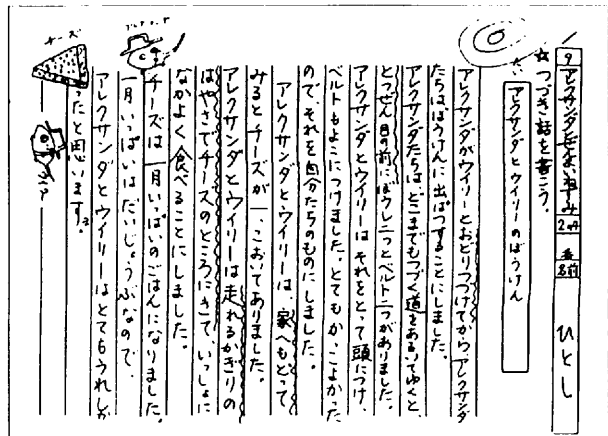 9 アレクサンダとぜんまいねずみ 2の 名前 ひとし
☆つづき話を書こう。
アレクサンダとウイリーのぼうけん
アレクサンダがウイリーとおどりつづけてからアレクサンダ
たちはぼうけんに出ぱつすることにしました。
アレクサンダたちは、どこまでもつづく道をあるいてゆくと、
とつぜん目の前にぼうし一つとベルト一つがありました。
アレクサンダとウイリーはそれをとって頭につけ、
ベルトもよこにつけました。とてもかっこよかった
ので、それを自分たちのものにしました。
アレクサンダとウイリーは、家へもどって
みるとチーズが一こおいてありました。
アレクサンダとウイリーは走れるかぎりの
はやさでチーズのところにきて、いっしょに
なかよく食べることにしました。
チーズは一月いっぱいのごはんになりました。
一月いっぱいはだいじょうぶなので、
アレクサンダとウイリーはとてもうれしか
ったと思います。
チーズ